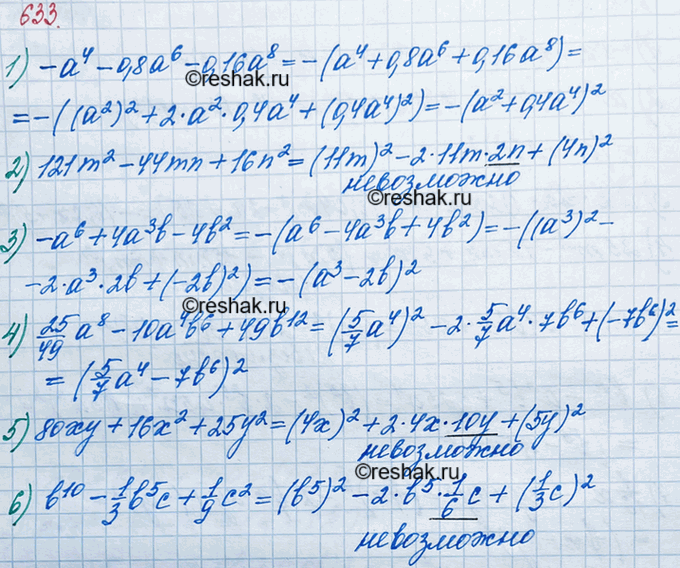 633.
1) -a⁴ - 0,8a⁶ - 0,16a⁸ = -(a⁴ + 0,8a⁶ + 0,16a⁸) =
©reshak.ru
= -((a²)² + 2·a²·0,4a⁴ + (0,4a⁴)²) = -(a² + 0,4a⁴)²
2) 121m² - 44mn + 16n² = (11m)² - 2·11m·2n + (4n)²
невозможно
©reshak.ru
3) -a⁶ + 4a³b - 4b² = -(a⁶ - 4a³b + 4b²) = -((a³)² -
- 2·a³·2b + (-2b)²) = -(a³ - 2b)²
©reshak.ru
4) 25/49 a⁸ - 10a⁴b⁶ + 49b¹² = (5/7 a⁴)² - 2·5/7 a⁴·7b⁶ + (-7b⁶)² =
= (5/7 a⁴ - 7b⁶)²
5) 80xy + 16x² + 25y² = (4x)² + 2·4x·10y + (5y)²
невозможно
©reshak.ru
6) b¹⁰ - 1/3 b⁵c + 1/9 c² = (b⁵)² - 2·b⁵·1/6 c + (1/3 c)²
невозможно